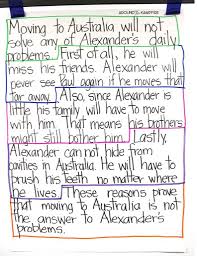 Moving to Australia will not
solve any of Alexander's daily
problems. First of all, he will
miss his friends. Alexander will
never see Paul again if he moves that
far away. Also, since Alexander is
little his family will have to move
with him. That means his brothers
might still bother him. Lastly,
Alexander can not hide from
cavities in Australia. He will have to
brush his teeth no matter where
he lives. These reasons prove
that moving to Australia is not
the answer to Alexander's
problems.